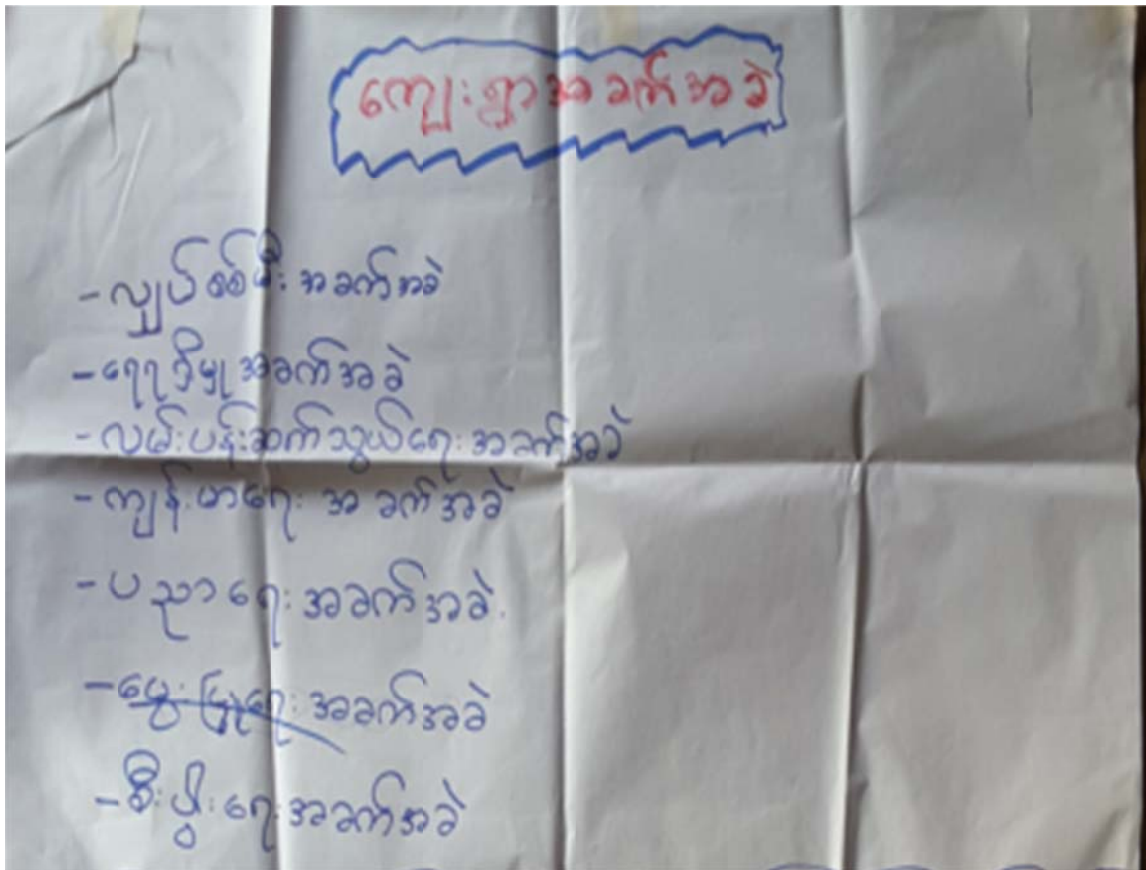 ကျေးရွာအခက်အခဲ
- လျှပ်စစ်မီး အခက်အခဲ
- ရေရရှိမှု အခက်အခဲ
- လမ်းပန်းဆက်သွယ်ရေး အခက်အခဲ
- ကျန်းမာရေး အခက်အခဲ
- ပညာရေး အခက်အခဲ
- မွေးမြူရေး အခက်အခဲ
- စီးပွါးရေး အခက်အခဲ